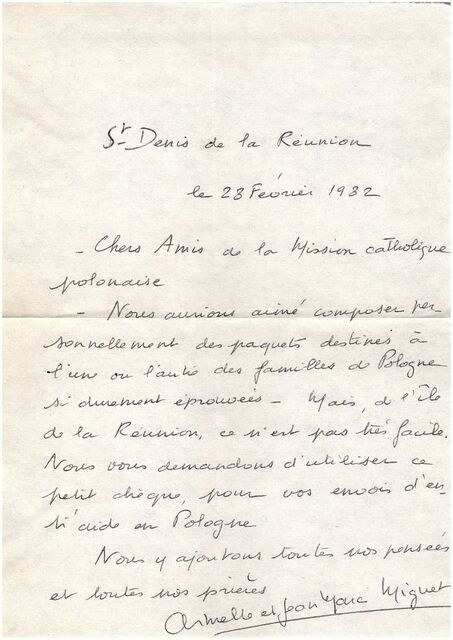 St Denis de la Réunion
le 28 Février 1982
- Chers Amis de la Mission catholique
polonaise
- Nous aurions aimé composer per-
sonnellement des paquets destinés à
l'une ou l'autre des familles de Pologne
si durement éprouvées - Mais, de l'Île
de la Réunion, ce n'est pas très facile.
Nous vous demandons d'utiliser ce
petit chèque, pour vos envois d'en-
tr'aide en Pologne
Nous y ajoutons toutes nos pensées
et toutes nos prières
Armelle et Jean Marc Miguet